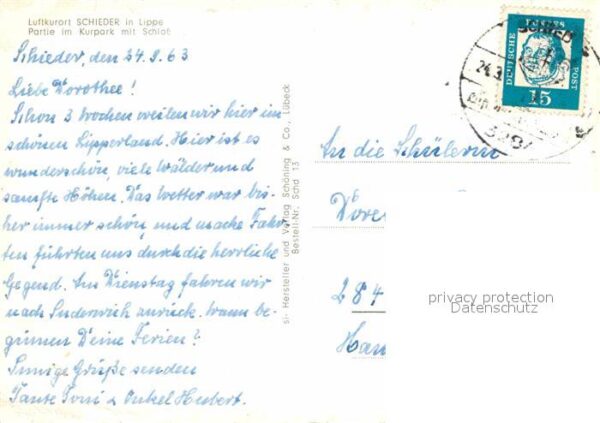 Luftkurort SCHIEDER in Lippe
Partie im Kurpark mit Schloß
Schieder, den 24.9.63
Liebe Dorothee!
Schon 3 Wochen weilen wir hier im
schönen Lipperland. Hier ist es
wunderschön, viele Wälder und
sanfte Höhen. Das Wetter war bis-
her immer schön, und manche Fahr-
ten führten uns durch die herrliche
Gegend. Am Dienstag fahren wir
nach Suderwich zurück. Wann be-
ginnen Deine Ferien?
Innige Grüße senden
Tante Toni & Onkel Hubert.
Hersteller und Verlag Schöning & Co., Lübeck
Bestell-Nr. Schd 13
DEUTSCHE
POST
15
An die Schülerin
Doro
284
privacy protection
Datenschutz